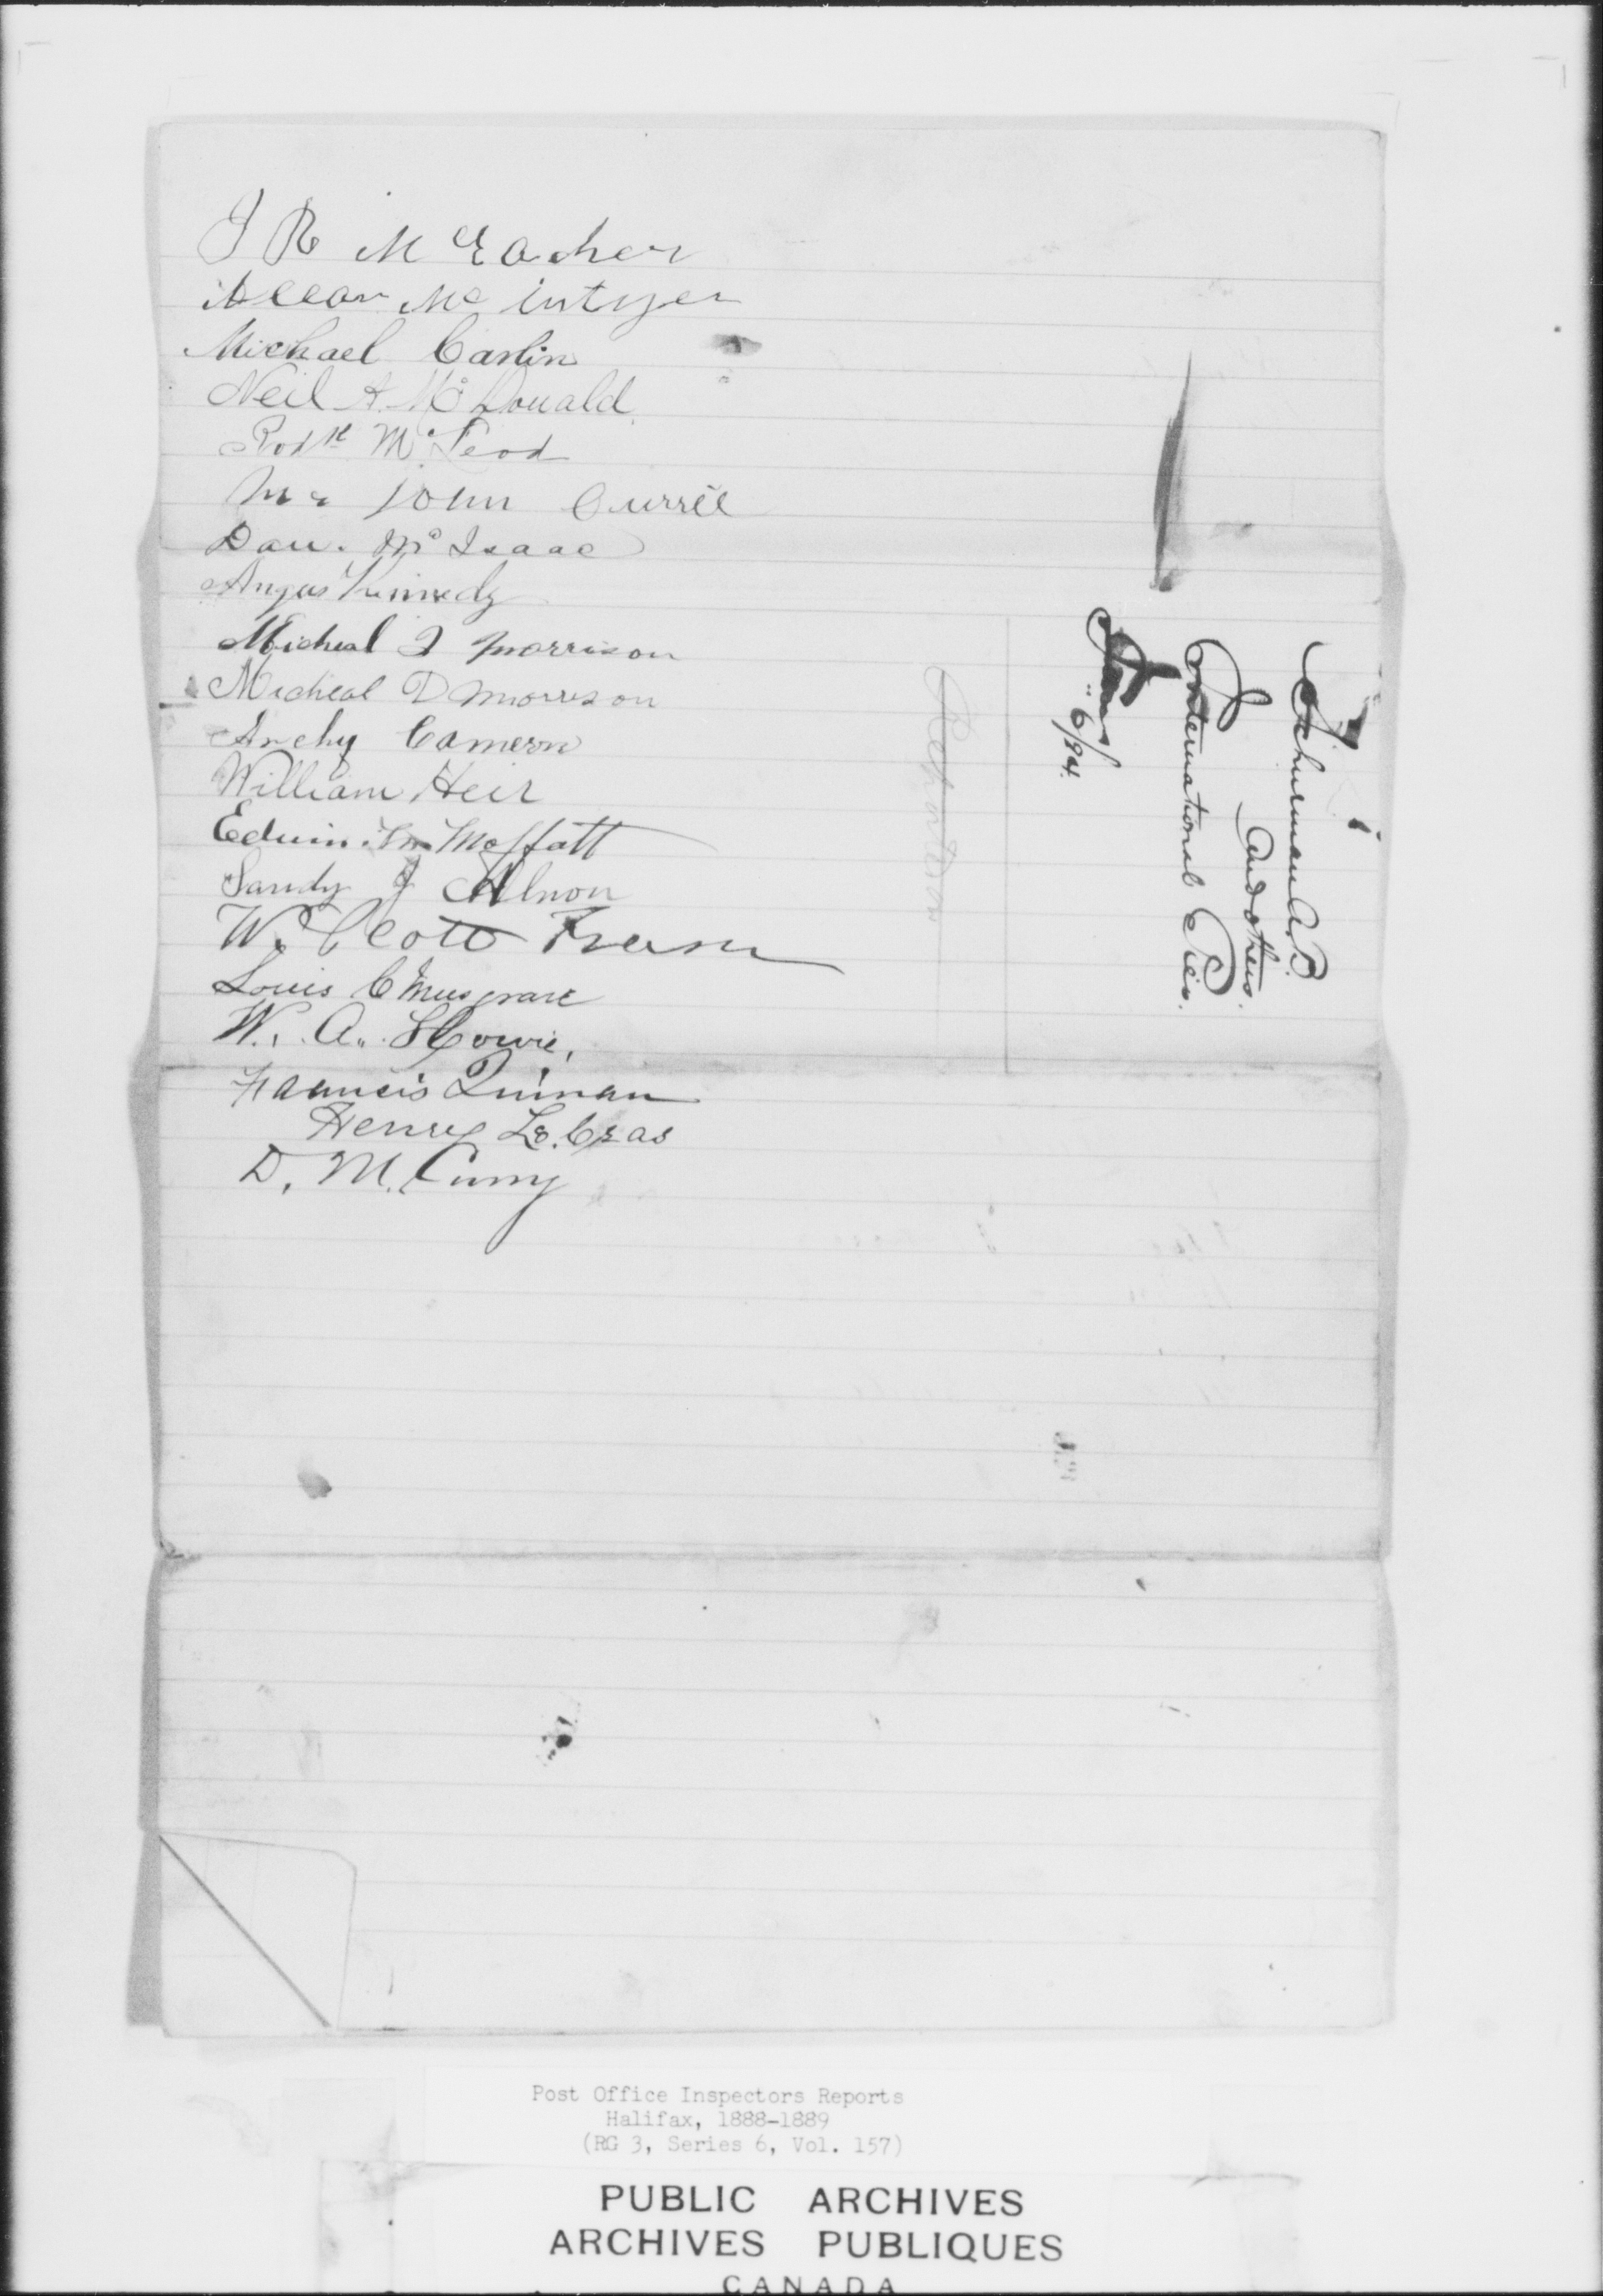 J R McEacher
Allan Mc intyer
Michael Carlin
Neil A. McDonald
Rodk McLeod
Mr John Currie
Dan. McIsaac
Angus Kennedy
Micheal J Morrison
Micheal D Morrison
Archy Cameron
William Heir
Edwin Moffatt
Sandy J Almon
W. Scott Fraser
Louis C Musgrave
W. A. Howie,
Francis Quinan
Henry Le Cras
D. M. Curry
Schurman A.B.
and others.
International Pier.
Jan 6/84.
Petition
Post Office Inspectors Reports
Halifax, 1888-1889
(RG 3, Series 6, Vol. 157)
PUBLIC ARCHIVES
ARCHIVES PUBLIQUES
CANADA